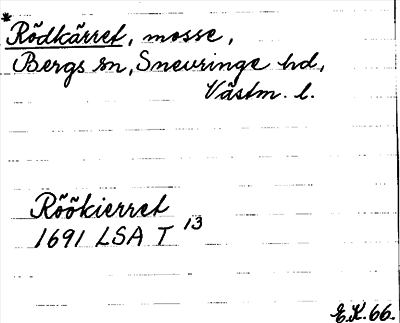 *
Rödkärret, mosse,
Bergs sn, Snevringe hd,
Västm. l.
Röökierret
1691 LSA T 13
E.K. 66.